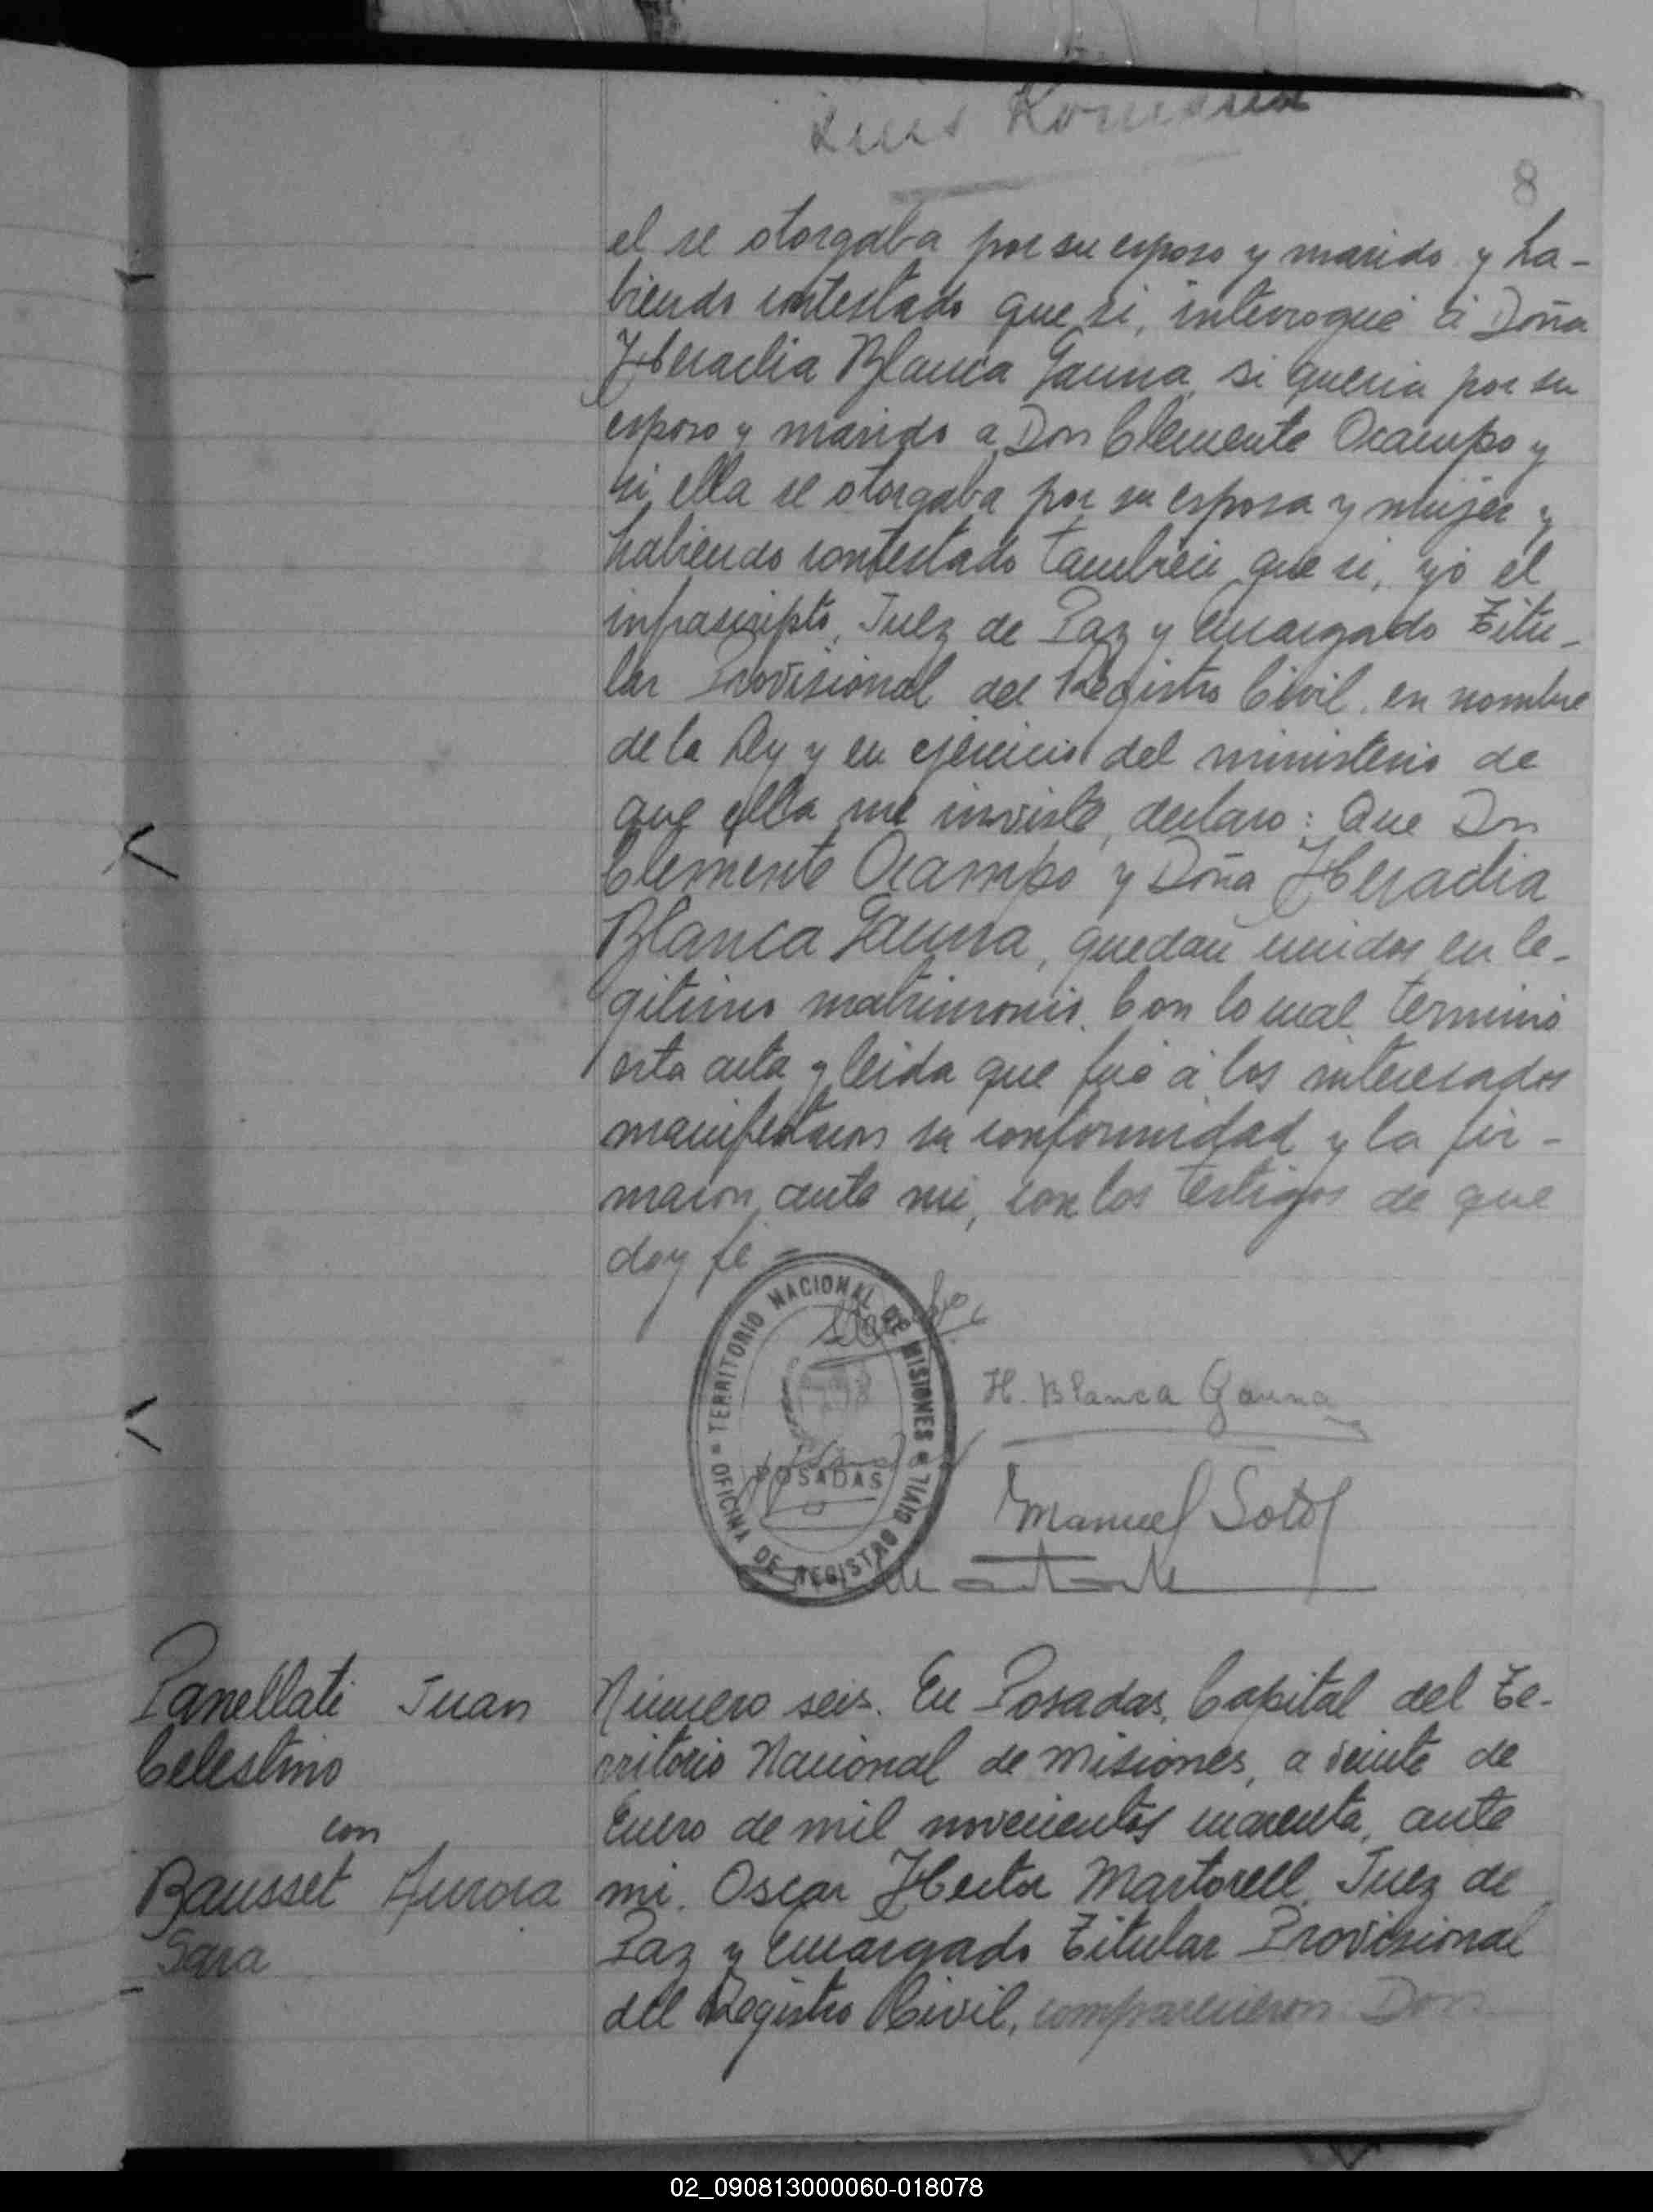 Luis
8
el se otorgaba por su esposo y marido y ha-
biendo contestado que si, interrogué á Doña
Heraclia Blanca Gauna, si queria por su
esposo y marido a Don Clemente Ocampo y
si ella se otorgaba por su esposa y mujer y
habiendo contestado tambien que si, yo el
infrascripto, Juez de Paz y Encargado Titu-
lar Provisional del Registro Civil, en nombre
de la Ley y en ejercicio del ministerio de
que ella me inviste, declaro: Que Dn
Clemente Ocampo y Doña Heraclia
Blanca Gauna, quedan unidos en le-
gitimo matrimonio. Con lo cual terminó
esta acta y leida que fué á los interesados
manifestaron su conformidad y la fir-
maron, ante mi, con los testigos de que
doy fe =
TERRITORIO NACIONAL DE MISIONES
H. Blanca Gauna
POSADAS
OFICINA DE REGISTRO CIVIL
Manuel Soto
Panellati Juan
Celestino
con
Bausset Aurora
Sara
Número seis. En Posadas, Capital del Te-
rritorio Nacional de Misiones, a veinte de
Enero de mil novecientos cuarenta, ante
mi, Oscar Hector Martorell, Juez de
Paz y Encargado Titular Provisional
del Registro Civil, comparecieron Don
02_090813000060-018078